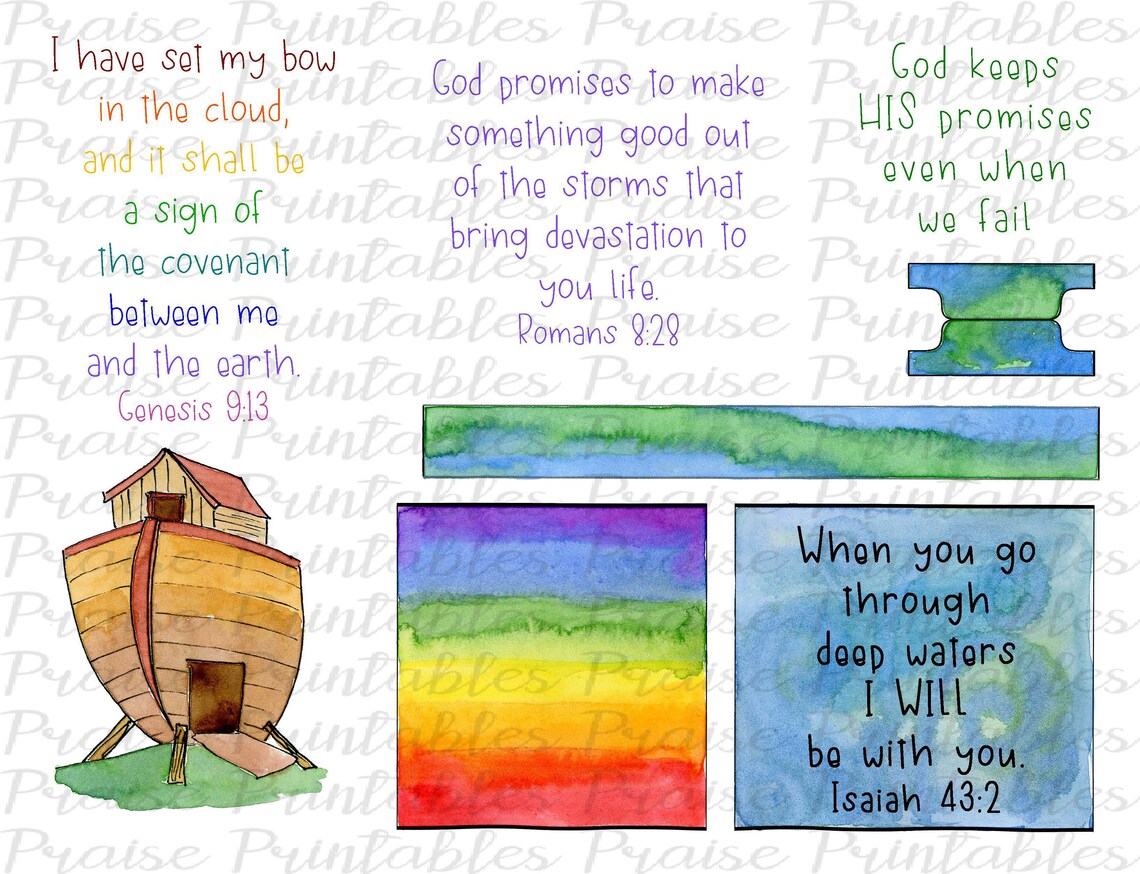 I have set my bow
in the cloud,
and it shall be
a sign of
the covenant
between me
and the earth.
Genesis 9:13
God promises to make
something good out
of the storms that
bring devastation to
you life.
Romans 8:28
God keeps
HIS promises
even when
we fail
When you go
through
deep waters
I WILL
be with you.
Isaiah 43:2
Praise Printables